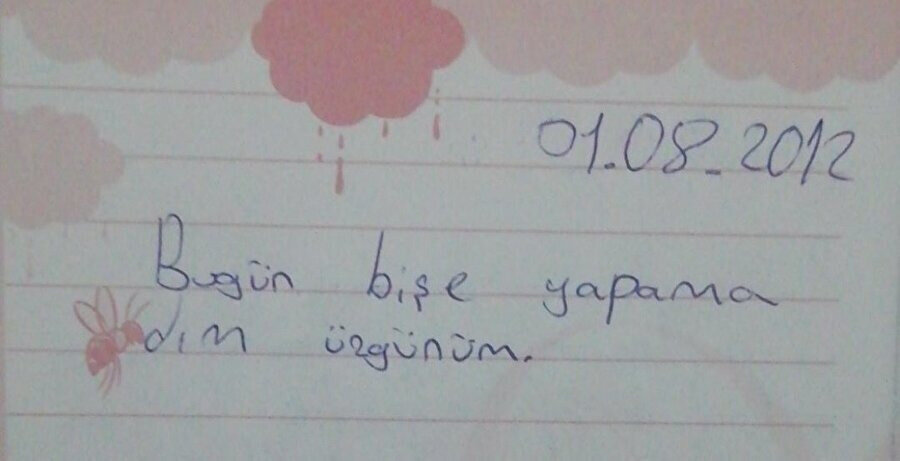 01.08.2012
Bugün bişe yapama
dım üzgünüm.